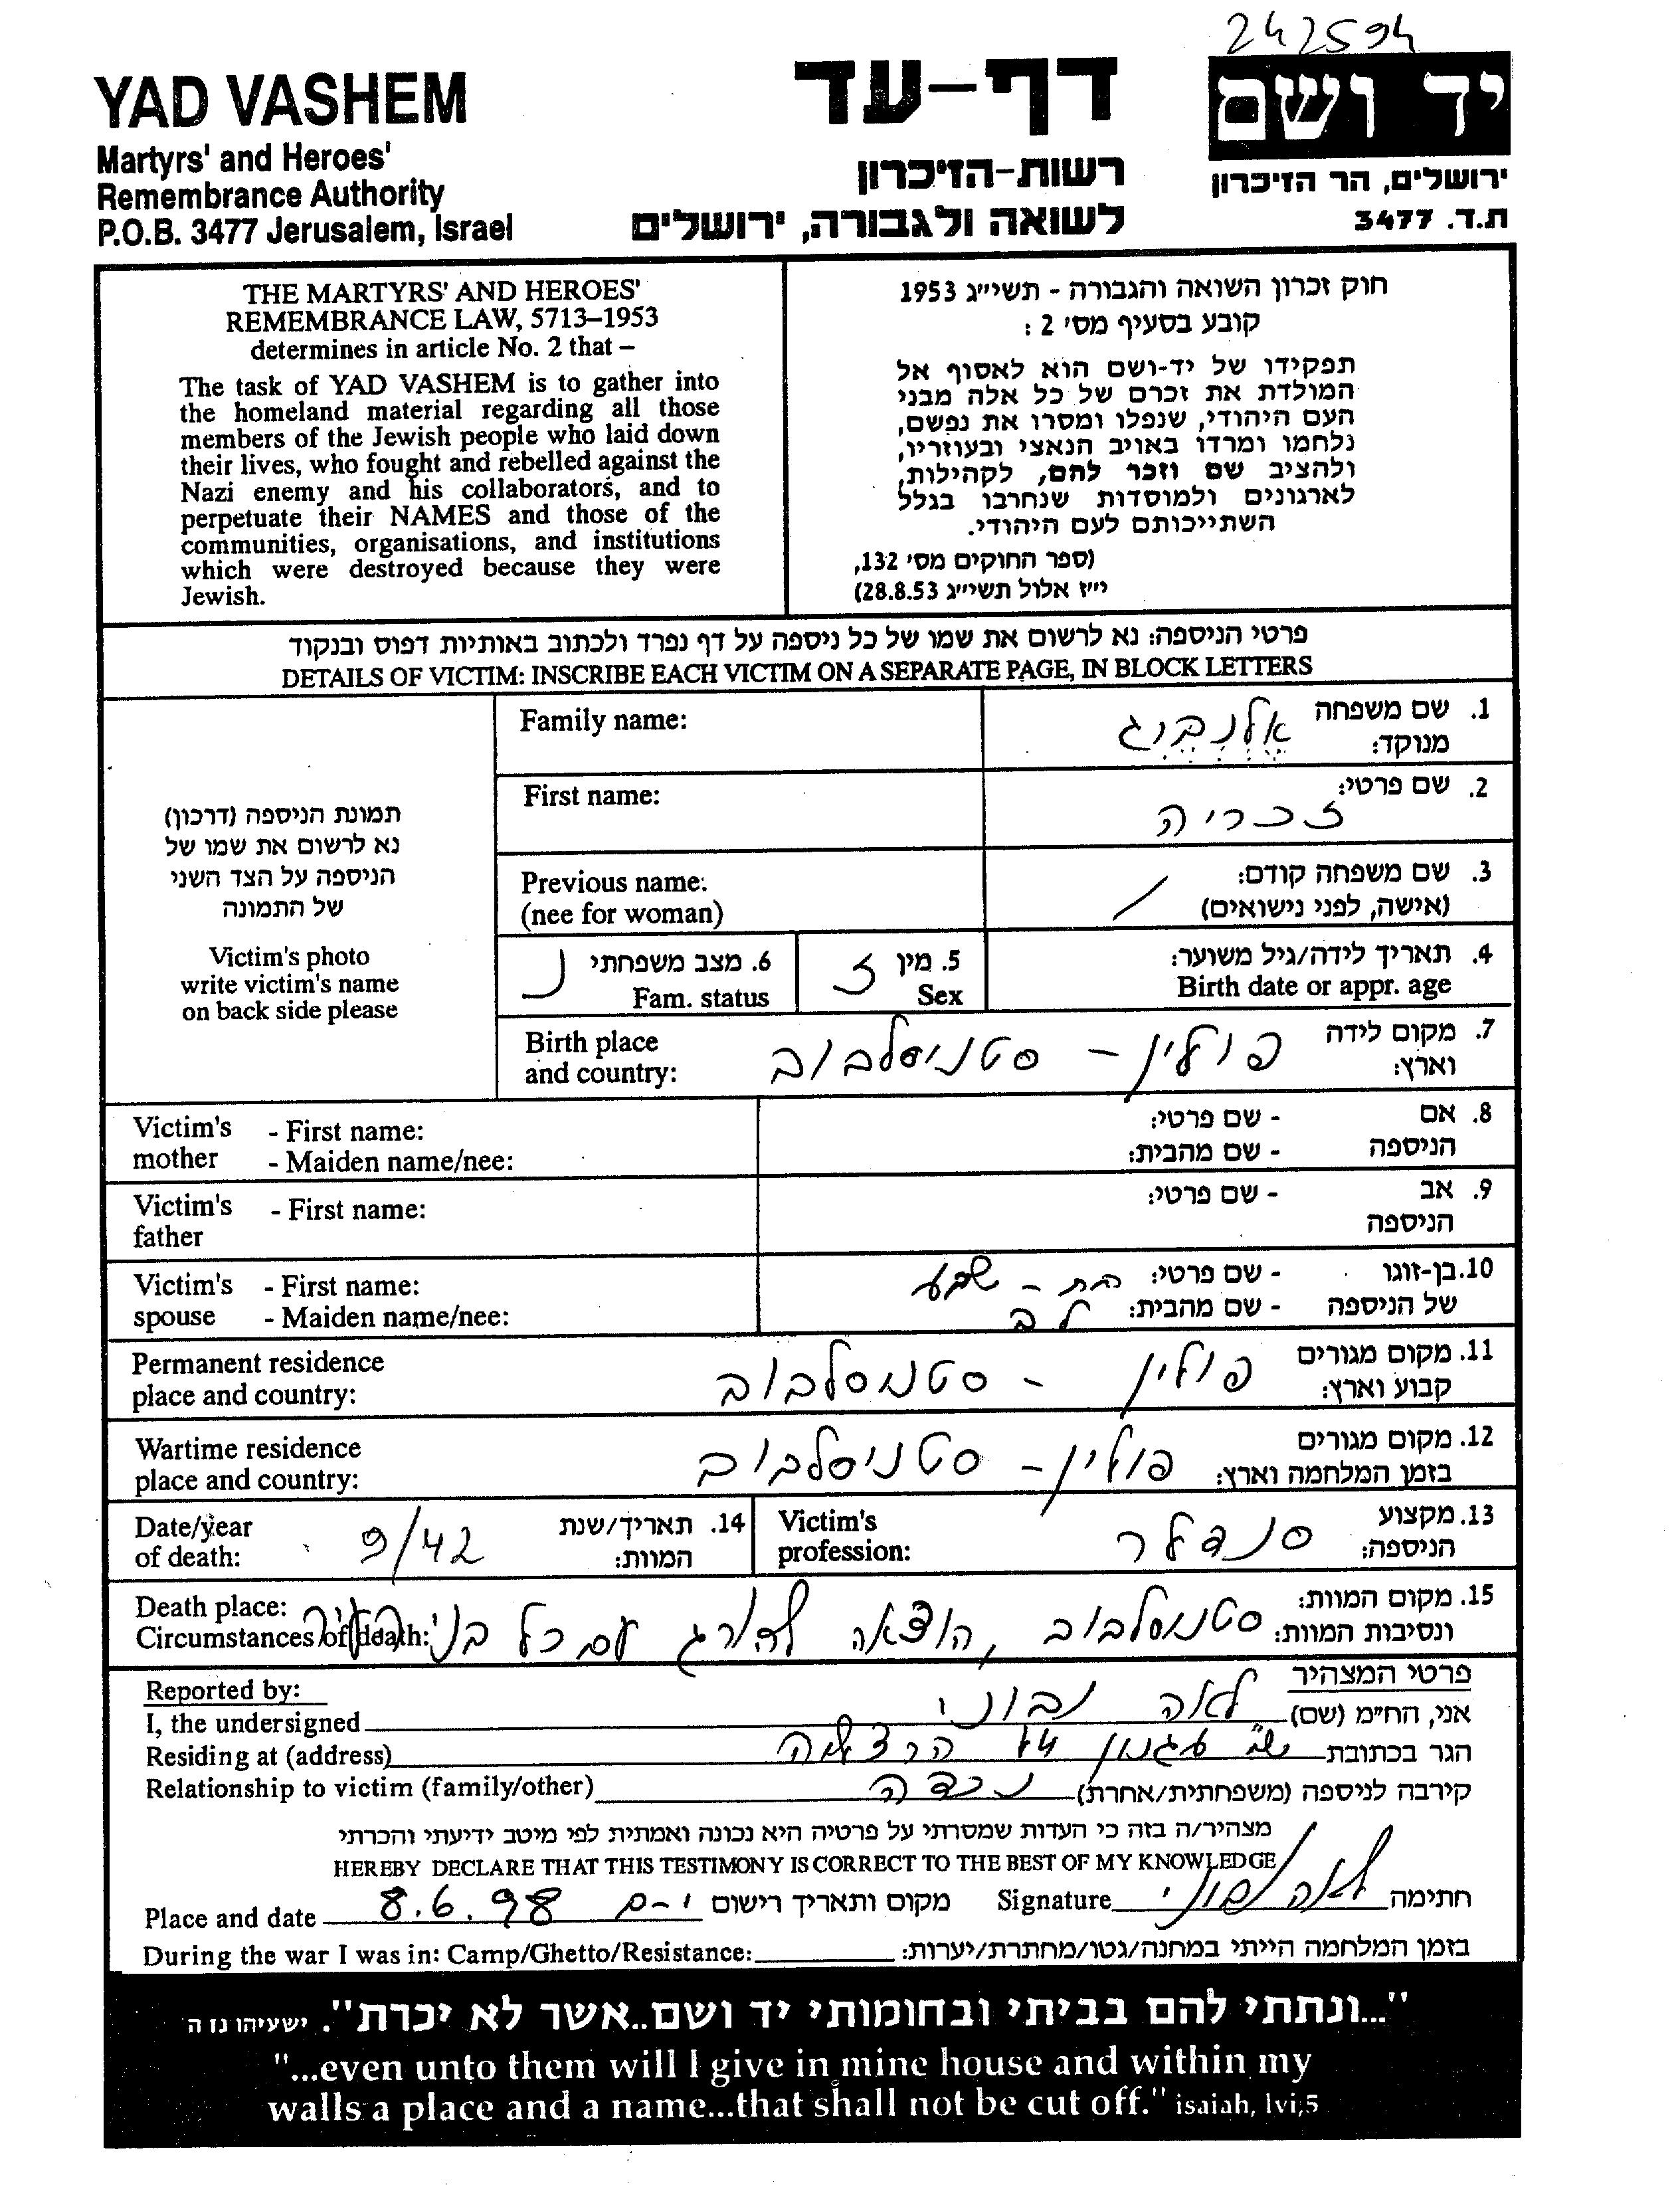 242594
YAD VASHEM
Martyrs' and Heroes'
Remembrance Authority
P.O.B. 3477 Jerusalem, Israel
דף-עד
רשות-הזיכרון
לשואה ולגבורה, ירושלים
יד ושם
ירושלים, הר הזיכרון
ת.ד. 3477
THE MARTYRS' AND HEROES'
REMEMBRANCE LAW, 5713–1953
determines in article No. 2 that –
The task of YAD VASHEM is to gather into
the homeland material regarding all those
members of the Jewish people who laid down
their lives, who fought and rebelled against the
Nazi enemy and his collaborators, and to
perpetuate their NAMES and those of the
communities, organisations, and institutions
which were destroyed because they were
Jewish.
חוק זכרון השואה והגבורה - תשי״ג 1953
קובע בסעיף מס׳ 2 :
תפקידו של יד-ושם הוא לאסוף אל
המולדת את זכרם של כל אלה מבני
העם היהודי, שנפלו ומסרו את נפשם,
נלחמו ומרדו באויב הנאצי ובעוזריו,
ולהציב שם וזכר להם, לקהילות,
לארגונים ולמוסדות שנחרבו בגלל
השתייכותם לעם היהודי.
(ספר החוקים מס׳ 132,
י״ז אלול תשי״ג 28.8.53)
פרטי הניספה: נא לרשום את שמו של כל ניספה על דף נפרד ולכתוב באותיות דפוס ובנקוד
DETAILS OF VICTIM: INSCRIBE EACH VICTIM ON A SEPARATE PAGE, IN BLOCK LETTERS
תמונת הניספה (דרכון)
נא לרשום את שמו של
הניספה על הצד השני
של התמונה
Victim's photo
write victim's name
on back side please
1. שם משפחה
מנוקד:
Family name:
2. שם פרטי: זכריה
First name:
3. שם משפחה קודם: /
(אישה, לפני נישואים)
Previous name:
(nee for woman)
4. תאריך לידה/גיל משוער:
Birth date or appr. age
5. מין ז
Sex
6. מצב משפחתי נ
Fam. status
7. מקום לידה פולין - סטניסלבוב
וארץ:
Birth place
and country:
8. אם - שם פרטי:
הניספה - שם מהבית:
Victim's - First name:
mother - Maiden name/nee:
9. אב - שם פרטי:
הניספה
Victim's - First name:
father
10. בן-זוגו - שם פרטי: בת - שבע
של הניספה - שם מהבית: לב
Victim's - First name:
spouse - Maiden name/nee:
11. מקום מגורים פולין - סטנסלבוב
קבוע וארץ:
Permanent residence
place and country:
12. מקום מגורים
בזמן המלחמה וארץ: פולין - סטניסלבוב
Wartime residence
place and country:
13. מקצוע
הניספה: סנדלר
Victim's
profession:
14. תאריך/שנת
המוות: 9/42
Date/year
of death:
15. מקום המוות:
ונסיבות המוות: סטנסלבוב, הוצאה להורג עם כל בני העיר
Death place:
Circumstances of death:
פרטי המצהיר
Reported by:
אני, הח״מ (שם) לאה נבוני
I, the undersigned
הגר בכתובת ש״י עגנון 44 הרצליה
Residing at (address)
קירבה לניספה (משפחתית/אחרת) נכדה
Relationship to victim (family/other)
מצהיר/ה בזה כי העדות שמסרתי על פרטיה היא נכונה ואמתית לפי מיטב ידיעתי והכרתי
HEREBY DECLARE THAT THIS TESTIMONY IS CORRECT TO THE BEST OF MY KNOWLEDGE
חתימה לאה נבוני Signature מקום ותאריך רישום י-ם 8.6.98 Place and date
בזמן המלחמה הייתי במחנה/גטו/מחתרת/יערות:
During the war I was in: Camp/Ghetto/Resistance:
"...ונתתי להם בביתי ובחומותי יד ושם..אשר לא יכרת". ישעיהו נו ה
"...even unto them will I give in mine house and within my
walls a place and a name...that shall not be cut off." isaiah, lvi,5